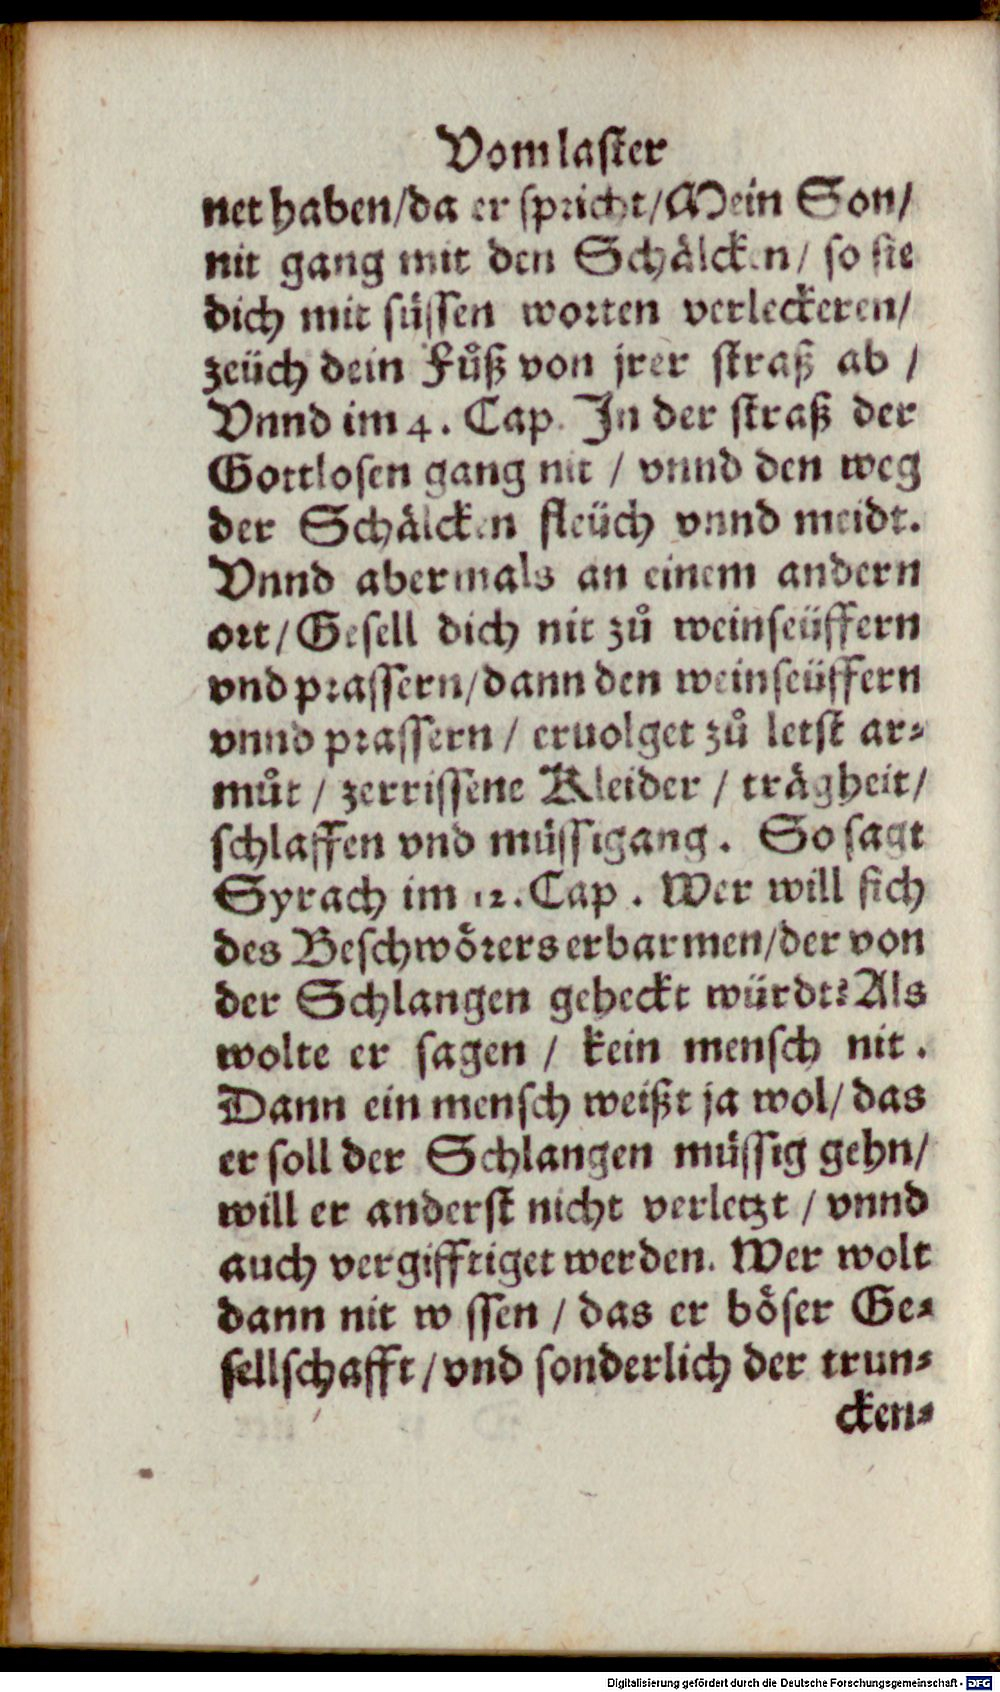 Vom laster
net haben/da er spricht/Mein Son/
nit gang mit den Schälcken/ so sie
dich mit süssen worten verleckeren/
zeüch dein Fůß von jrer straß ab /
Vnnd im 4. Cap. In der straß der
Gottlosen gang nit / vnnd den weg
der Schälcken fleüch vnnd meidt.
Vnnd abermals an einem andern
ort/ Gesell dich nit zů weinseüffern
vnd prassern/dann den weinseüffern
vnnd prassern / eruolget zů letst ar⸗
můt / zerrissene Kleider / trägheit/
schlaffen vnd müssigang. So sagt
Syrach im 12. Cap. Wer will sich
des Beschwörers erbarmen/der von
der Schlangen geheckt würdt? Als
wolte er sagen / kein mensch nit.
Dann ein mensch weißt ja wol/ das
er soll der Schlangen müssig gehn/
will er anderst nicht verletzt / vnnd
auch vergifftiget werden. Wer wolt
dann nit wissen / das er böser Ge⸗
sellschafft/vnd sonderlich der trun⸗
cken⸗
Digitalisierung gefördert durch die Deutsche Forschungsgemeinschaft - DFG